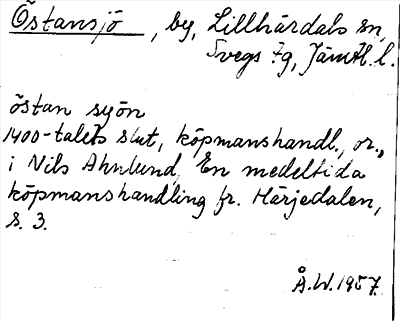 Östansjö, by, Lillhärdals sn,
Svegs tg, Jämtl. l.
östan syön
1400-talets slut, köpmanshandl., or.,
i Nils Ahnlund, En medeltida
köpmanshandling fr. Härjedalen,
s. 3.
Å.W. 1957.